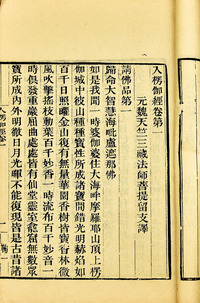 入楞伽經卷第一
元魏天竺三藏法師菩提留支譯
請佛品第一
歸命大智慧海毗盧遮那佛
如是我聞一時婆伽婆住大海畔摩羅耶山頂上楞
伽城中彼山種種寶性所成諸寶間錯光明赫焰如
百千日照曜金山復有無量華園香樹皆寶香林微
風吹擊搖枝動葉百千妙香一時流布百千妙音一
時俱發重巖屈曲處處皆有仙堂靈室龕窟無數眾
寶所成內外明徹日月光暉不能復現皆是古昔諸
入楞伽經卷一